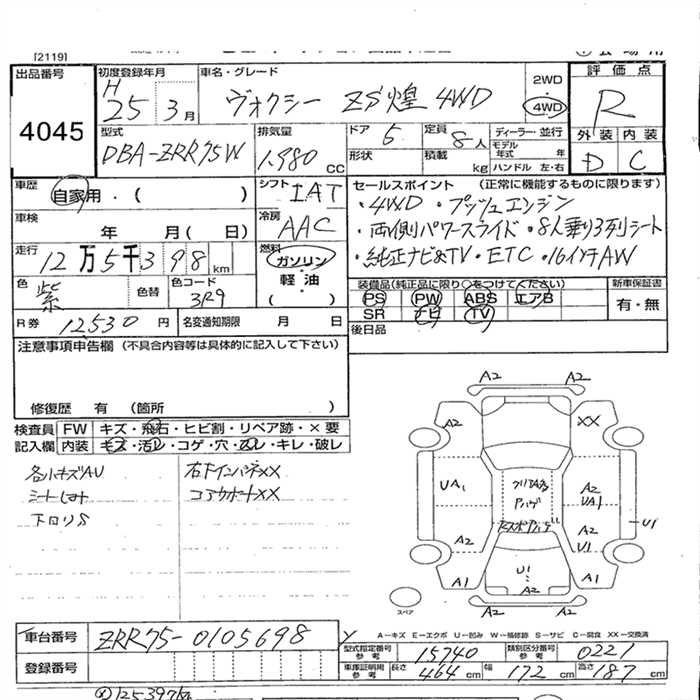 [2119]
出品番号
4045
初度登録年月
H 25 3月
車名・グレード
ヴォクシー ZS煌 4WD
2WD
4WD
評価点
R
外装 内装
D C
型式
DBA-ZRR75W
排気量
1.980 cc
ドア
5
定員
8人
形状
積載
kg
ディーラー・並行
モデル年式 年
ハンドル 左・右
車歴
自家用・( )
シフト
IAT
車検
年 月( 日)
冷房
AAC
走行
12万5千398km
燃料
ガソリン
軽・油
( )
色
紫
色替
色コード
3R9
R券 12530円
名変通知期限 月 日
セールスポイント (正常に機能するものに限ります)
・4WD ・プッシュエンジン
・両側パワースライド・8人乗り3列シート
・純正ナビ&TV・ETC・16インチAW
装備品(純正品に限り○をつけてください)
新車保証書
PS PW ABS エアB
有・無
SR ナビ TV
後日品
注意事項申告欄 (不具合内容等は具体的に記入して下さい)
修復歴 有 (箇所 )
検査員 FW キズ・飛石・ヒビ割・リペア跡・×要
記入欄 内装 キズ・汚レ・コゲ・穴・スレ・キレ・破レ
各小キズAU
下回りS
右FインパネXX
コアサポートXX
A2 A2
A2 XX
UA1
A2
UA1
U1
A2
A2
U1
A1
U1
A2
A1
A2 A2
スペア
A-キズ E-エクボ U-凹み W-補修跡 S-サビ C-腐食 XX-交換済
車台番号
ZRR75-0105698
登録番号
型式指定番号 参考
15740
類別区分番号 参考
0221
車庫証明用 参考
長さ 464cm 幅 172cm 高さ 187cm
125397km